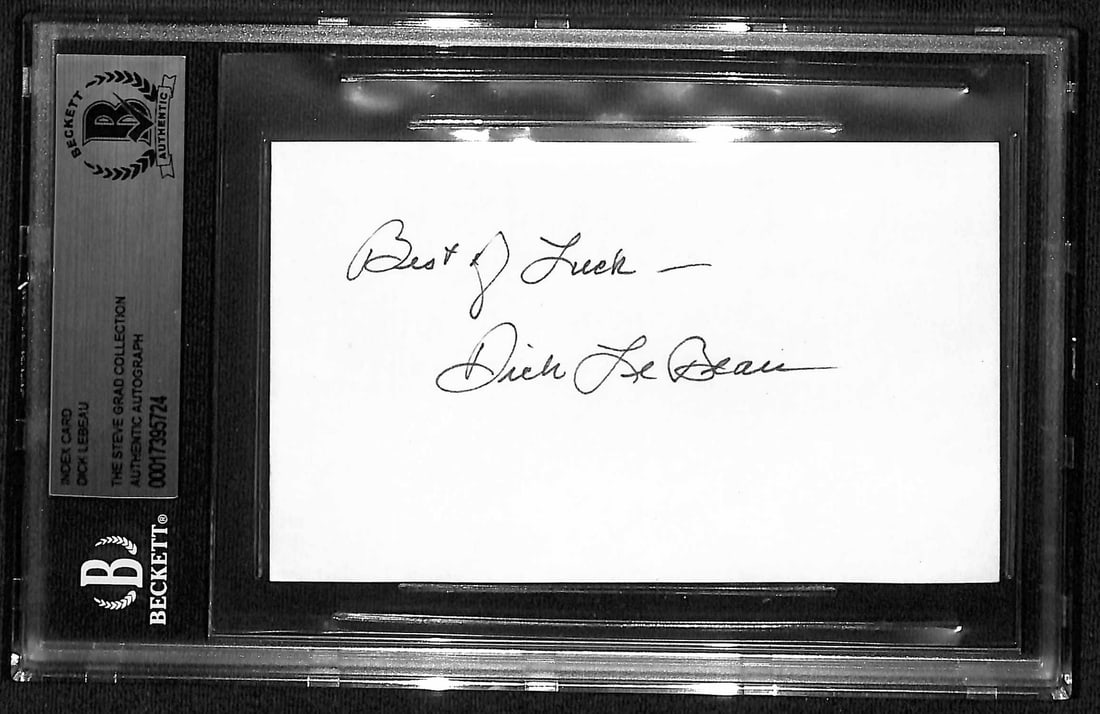 BECKETT
B
AUTHENTIC
INDEX CARD
DICK LEBEAU
THE STEVE GRAD COLLECTION
AUTHENTIC AUTOGRAPH
00017395724
B
BECKETT®
Best of Luck —
Dick LeBeau